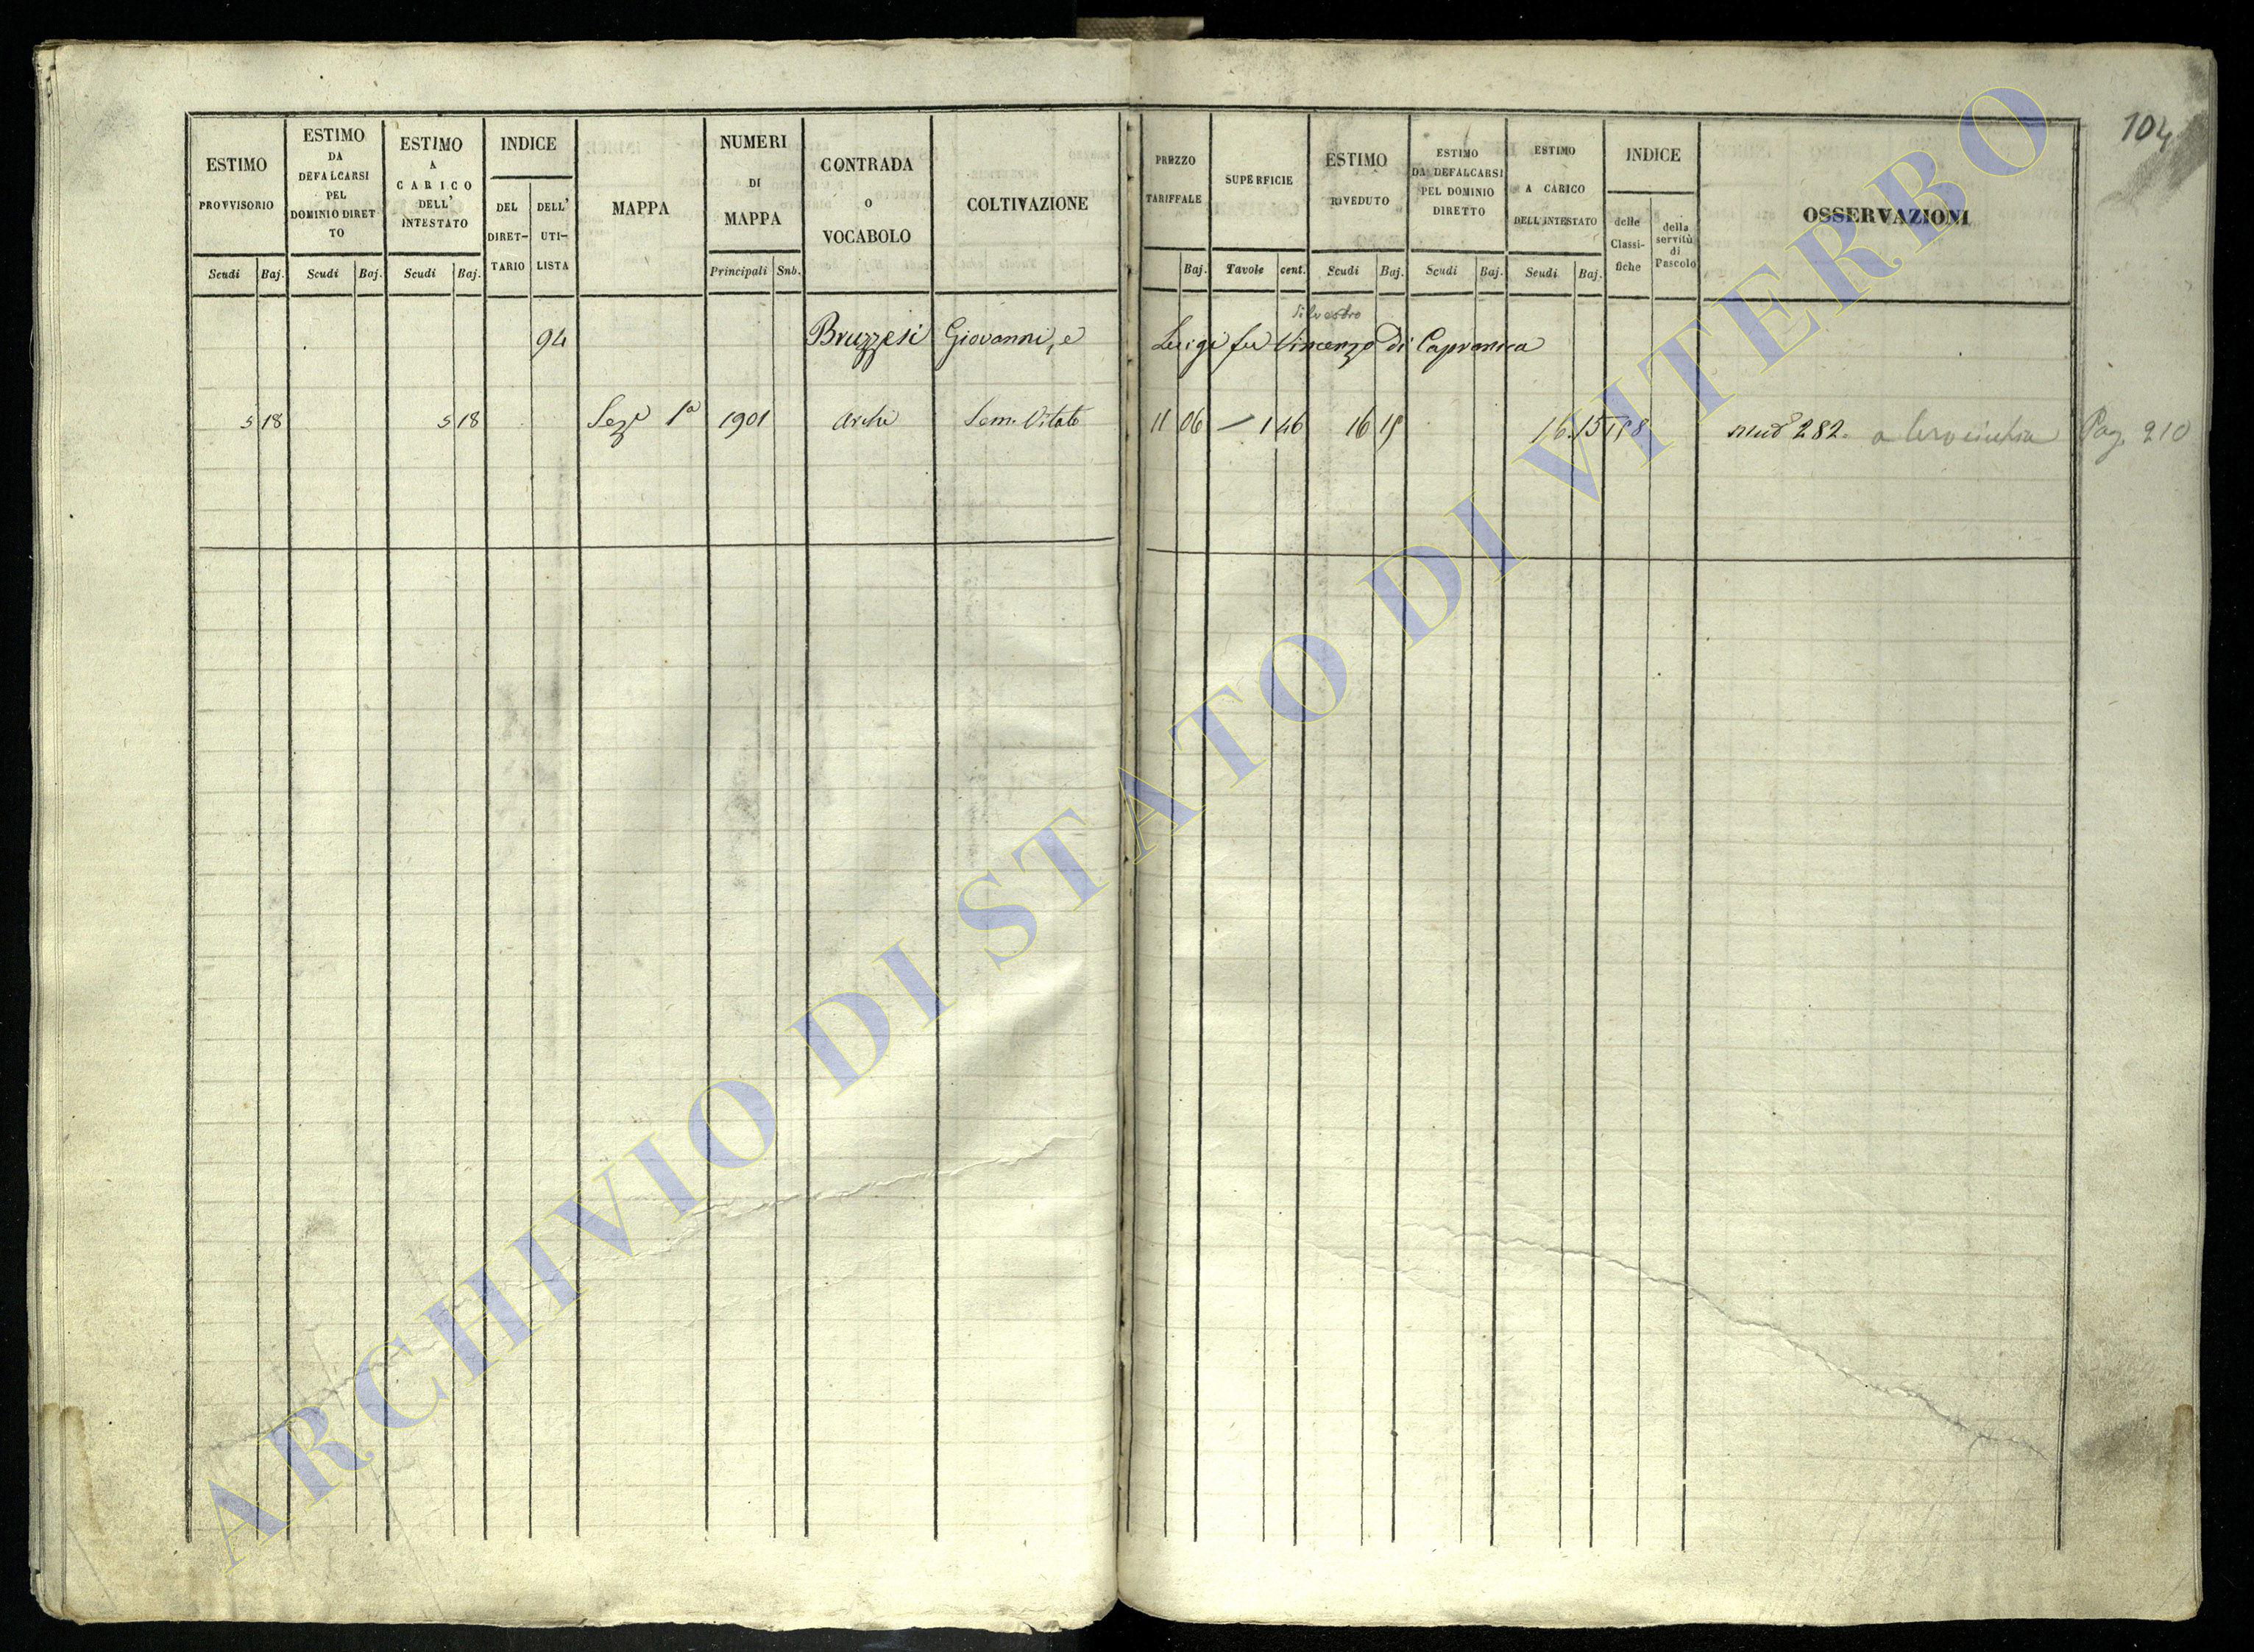 104
ESTIMO PROVVISORIO Scudi Baj.
ESTIMO DA DEFALCARSI PEL DOMINIO DIRETTO Scudi Baj.
ESTIMO A CARICO DELL' INTESTATO Scudi Baj.
INDICE DEL DIRET-TARIO DELL' UTI-LISTA
MAPPA
NUMERI DI MAPPA Principali Snb.
CONTRADA O VOCABOLO
COLTIVAZIONE
PREZZO TARIFFALE Baj.
SUPERFICIE Tavole cent.
ESTIMO RIVEDUTO Scudi Baj.
ESTIMO DA DEFALCARSI PEL DOMINIO DIRETTO Scudi Baj.
ESTIMO A CARICO DELL'INTESTATO Scudi Baj.
INDICE delle Classi-fiche della servitù di Pascolo
OSSERVAZIONI
Silvestro
94 Bruzzesi Giovanni, e Luigi fu Vincenzo di Capranica
5 18 5 18 Sez.e 1a 1901 Archi Sem. Vitato 11 06 — 1 46 16 15 16 15 282. a Pag. 210
ARCHIVIO DI STATO DI VITERBO